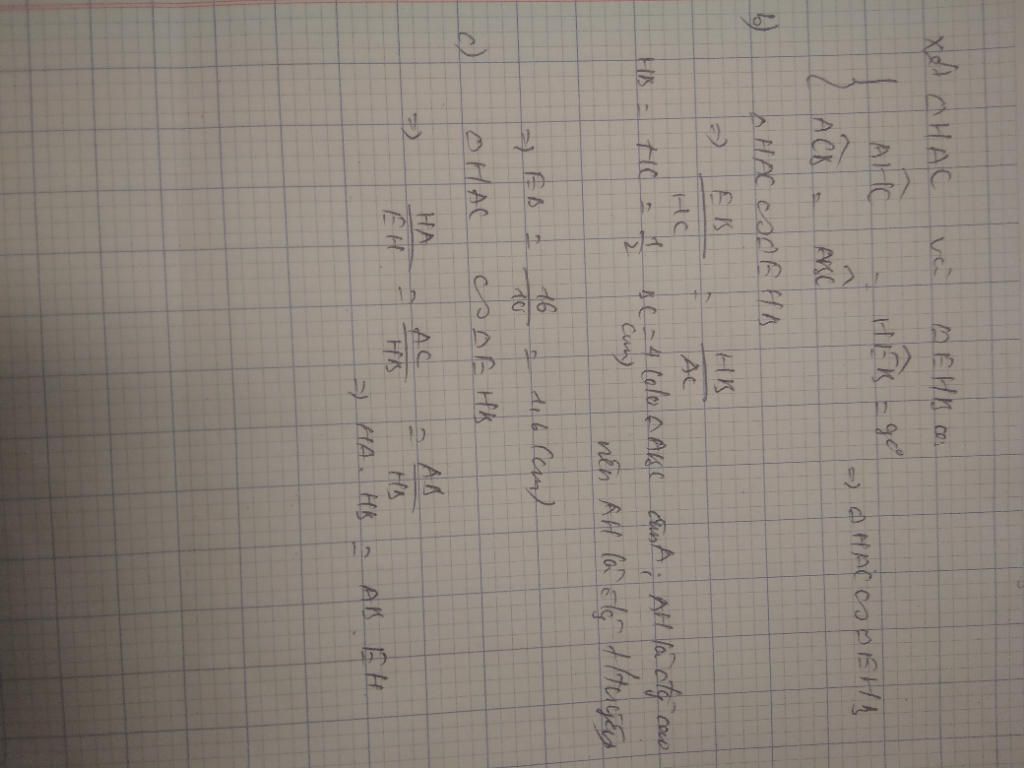 Xét △HAC và △EHB có
{ AĤC = HÊB = 90°
AĈB = AB̂C => △HAC ∽ △EHB
b) △HAC ∽ △EHB
=> EB/HC = HB/AC
HB = HC = 1/2 BC = 4 (cm) (do △ABC cân A; AH là đg cao
nên AH là đg t/tuyến
=> EB = 16/10 = 1,6 (cm)
c) △HAC ∽ △EHB
=> HA/EH = AC/HB = AB/HB
=> HA . HB = AB . EH